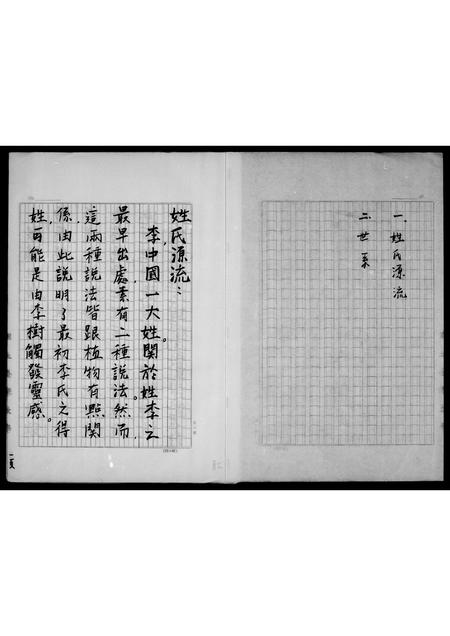 一、姓氏源流
二、世系
姓氏源流：
李，中國一大姓。關於姓李之
最早出處，素有二種說法。然而，
這兩種說法皆跟植物有點關
係，由此說明了最初李氏之得
姓，可能是由李樹觸發靈感。